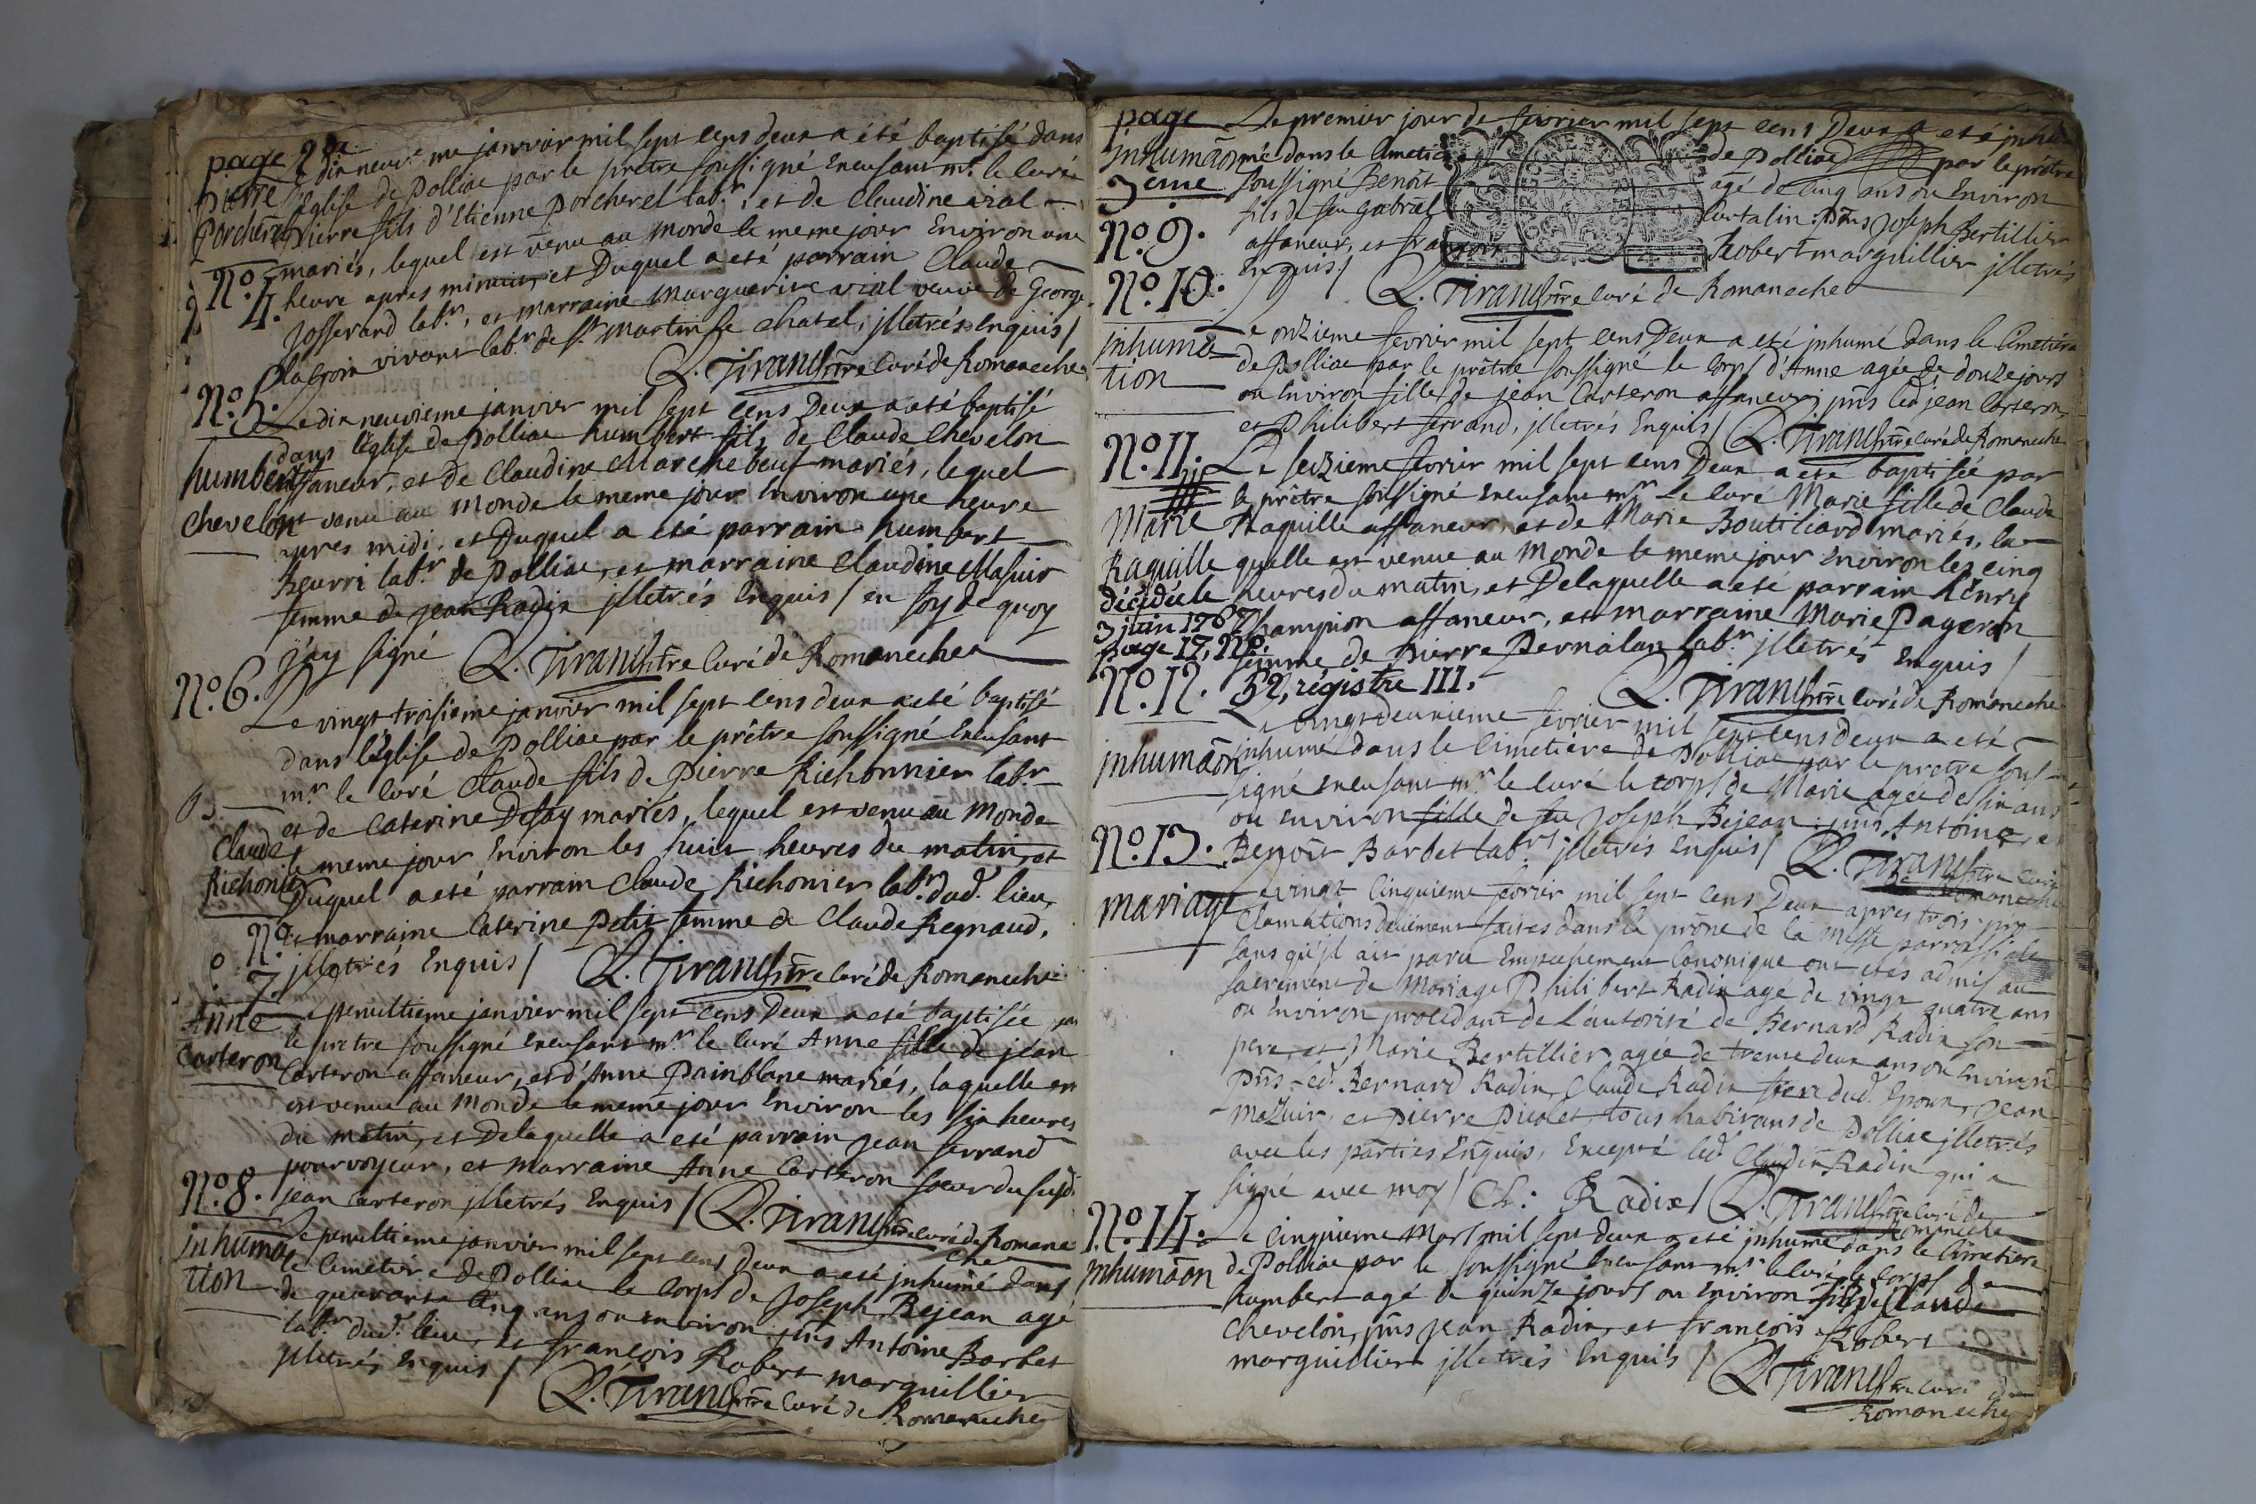 page 2e
Le dix neuv.me janvier mil sept cens deux a été baptisé dans
pierre
l'église de Polliac par le prêtre soussigné Excusant mr. le Curé
porcherel
Pierre fils d'Etienne Porcherel lab.r, et de Claudine vial
mariés, lequel est venu au monde le meme jour Environ une
No. 4.
heure apres minuit, et Duquel a eté parrain Claude
Josserand lab.r, et marraine Marguerite vial veuve de George
Placroix vivant lab.r de St. Martin le Chatel, jlletrés Enquis/
L. Tirand ptre Curé de Romaneche
No. 5.
Le dix neuvieme janvier mil sept cens Deux a eté baptisé
dans l'église de Polliac humbert fils de Claude Chevelon
humbert
affaneur, et de Claudine Marchebeuf mariés, lequel
chevelon
est venu au monde le meme jour Environ une heure
apres midi, et Duquel a eté parrain humbert
Beurri lab.r de Polliac, et marraine Claudine Masuir
femme de jean Radix jlletrés Enquis/ en foy de quoy
j'ay signé L. Tirand ptre Curé de Romaneche
No. 6.
Le vingt troisieme janvier mil sept cens deux a eté baptisé
dans l'église de Polliac par le prêtre soussigné Excusant
m.r le Curé Claude fils de Pierre Richonnier lab.r
et de Caterine Defay mariés, lequel est venu au monde
Claude
le meme jour Environ les huit heures du matin, et
Richonier
Duquel a eté parrain Claude Richonier lab.r dud. lieu,
No.
et marraine Caterine Petit femme de Claude Regnaud,
7.
jlletrés Enquis/ L. Tirand ptre Curé de Romaneche
Anne
Le penultieme janvier mil sept cens Deux a eté baptisée par
le prêtre soussigné Excusant mr. le Curé Anne fille de jean
Carteron
Carteron affaneur, et d'Anne Painblanc mariés, laquelle en
est venue au monde le meme jour Environ les six heures
du matin, et Delaquelle a eté parrain jean ferrand
pourvoyeur, et marraine Anne Carteron soeur du susd.
No. 8.
jean Carteron jlletrés Enquis/ L. Tirand ptre Curé de Romane
che
Le penultieme janvier mil sept cens Deux a eté inhumé dans
inhuma
le Cimetiére de Polliac le Corps de Joseph Bejean agé
tion
de quarante Cinq ans ou environ, pns Antoine Barbet
lab.r dud. lieu, et françois Robert marguillier
jlletrés Enquis/
L. Tirand ptre Curé de Romaneche
page
3eme
Le premier jour de fevrier mil sept cens Deux a eté inhu
inhumaon
mé dans le Cimetie de Polliac par le prêtre
soussigné Benoit agé de Cinq ans ou Environ
No. 9.
fils de feu Gabriel Curtalin, pns Joseph Bertillier
affaneur, et françois Robert marguillier jlletrés
No. 10.
Enquis/ L. Tirand ptre Curé de Romaneche
Le onzieme fevrier mil sept cens Deux a eté inhumé dans le Cimetiére
inhuma
tion
de Polliac par le prêtre soussigné le Corps d'Anne agée de douze jours
ou Environ fille de jean Carteron affaneur, pns led. jean Carteron,
et Philibert ferrand, jlletrés Enquis/ L. Tirand ptre Curé de Romaneche
No. 11.
Le seizieme fevrier mil sept cens Deux a eté baptisée par
le prêtre soussigné Excusant mr. Le Curé Marie fille de Claude
Marie
Raquille affaneur, et de Marie Boutilliard mariés, la
Raquille
quelle est venue au monde le meme jour Environ les cinq
décédée le
heures du matin, et Delaquelle a eté parrain henry
3 juin 1767
Champion affaneur, et marraine Marie Pageron
page 17, No.
femme de Pierre Pernalan lab.r jlletrés Enquis/
52, régistre III.
L. Tirand ptre Curé de Romaneche
No. 12.
Le vingt deuxieme fevrier mil sept cens deux a eté
inhumaon
inhumé dans le Cimetiére de Polliac par le prêtre sous
signé excusant mr. le Curé le corps de Marie agée de six ans
ou environ fille de feu Joseph Bejean, pns Antoine, et
No. 13.
Benoit Barbet lab.rs jlletrés Enquis/ L. Tirand ptre Curé
de Romaneche
mariage
Le vingt Cinquieme fevrier mil sept cens Deux apres trois pro
clamations deüement faites dans le prône de la Messe parroissiale
sans qu'jl ait paru Empechement Canonique ont etés admis au
sacrement de Mariage Philibert Radix agé de vingt quatre ans
ou Environ procedant de L'autorité de Bernard Radix son
pere, et Marie Bertillier agée de trente deux ans ou Environ
pns led. Bernard Radix, Claude Radix frere dud. Epoux, Jean
Mazuir, et Pierre Picolet tous habitans de Polliac jlletrés
avec les parties Enquis, Excepté led. Claudin Radix qui a
signé avec moy/ Cl. Radix/ L. Tirand ptre Curé de
Romaneche
No. 14.
Le Cinquieme Mars mil sept deux a eté inhumé dans le Cimetiere
inhumaon
de Polliac par le soussigné Excusant mr. le Curé le Corps de
humbert agé de quinze jours ou Environ fils de Claude
Chevelon, pns jean Radix, et françois Robert
marguillier jlletrés Enquis/
L. Tirand ptre Curé de
Romaneche